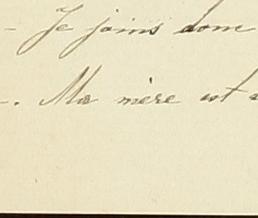 - Je joins donc
-. Ma mère est